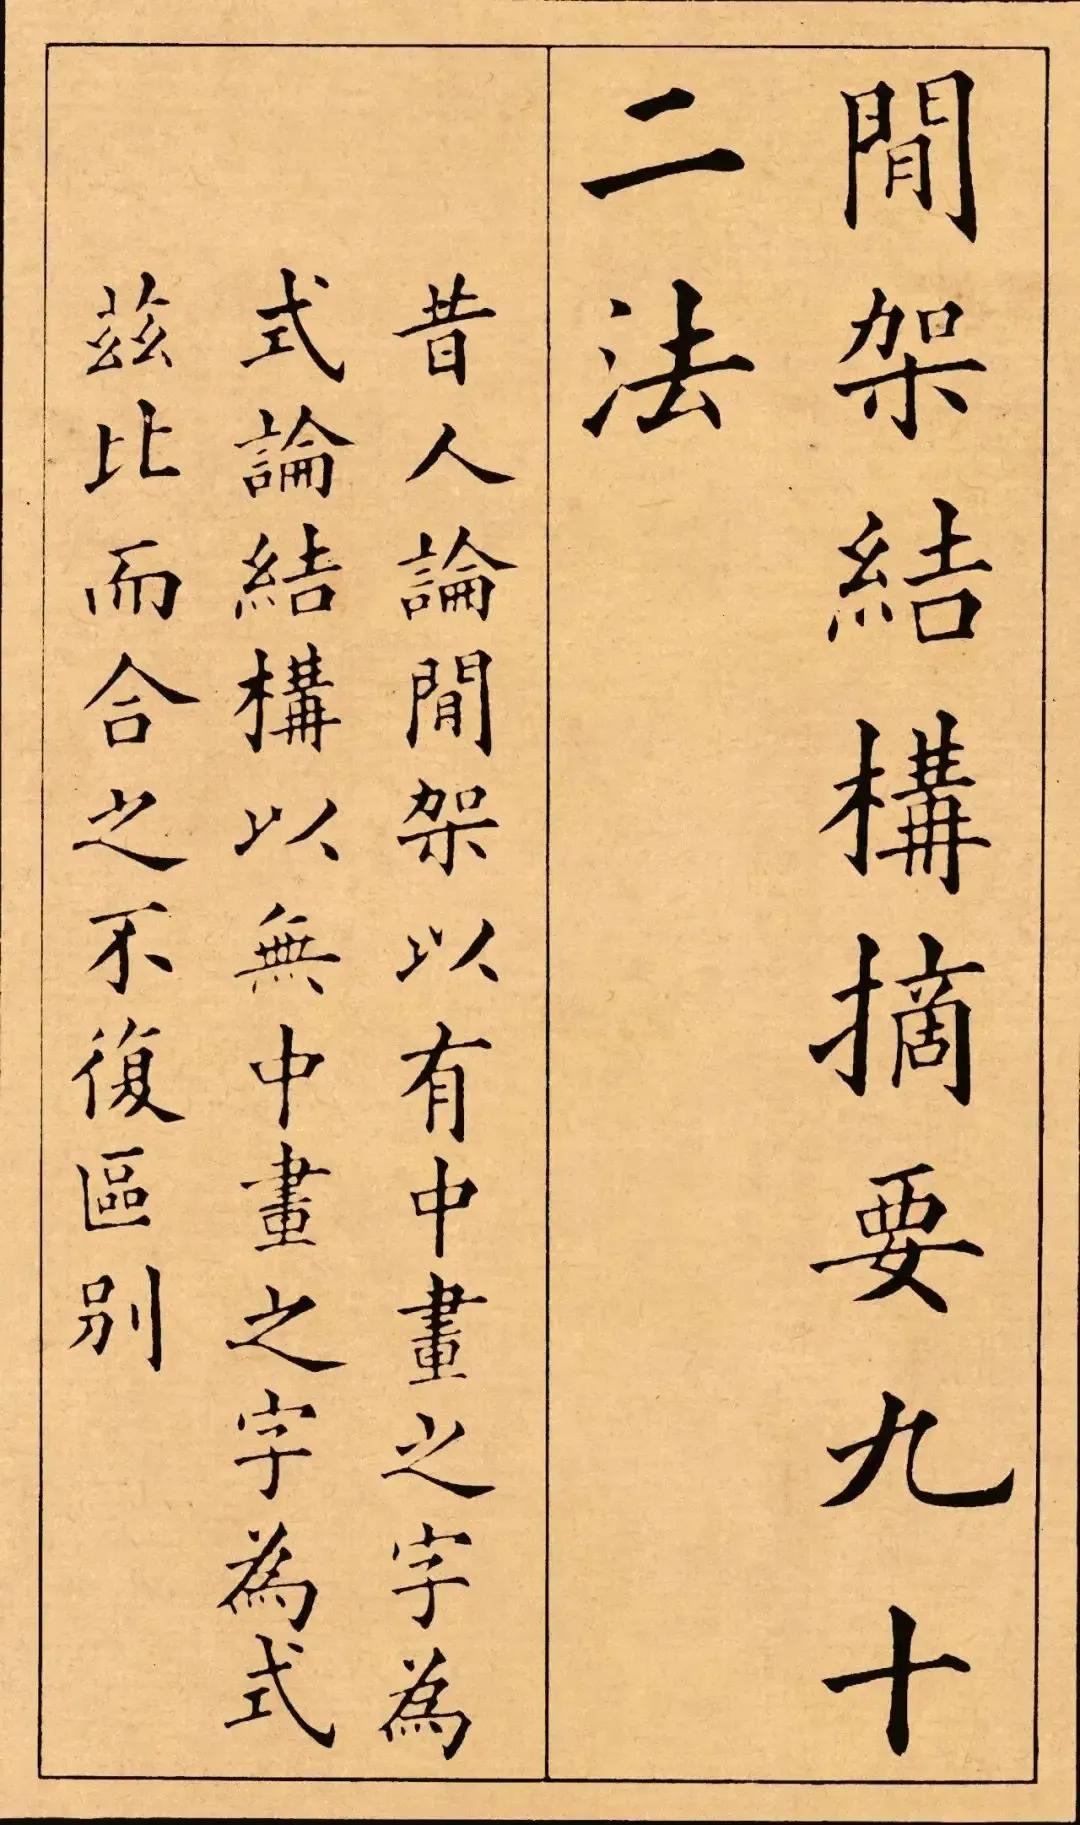 間架結構摘要九十
二法
昔人論間架以有中畫之字為
式論結構以無中畫之字為式
茲比而合之不復區别